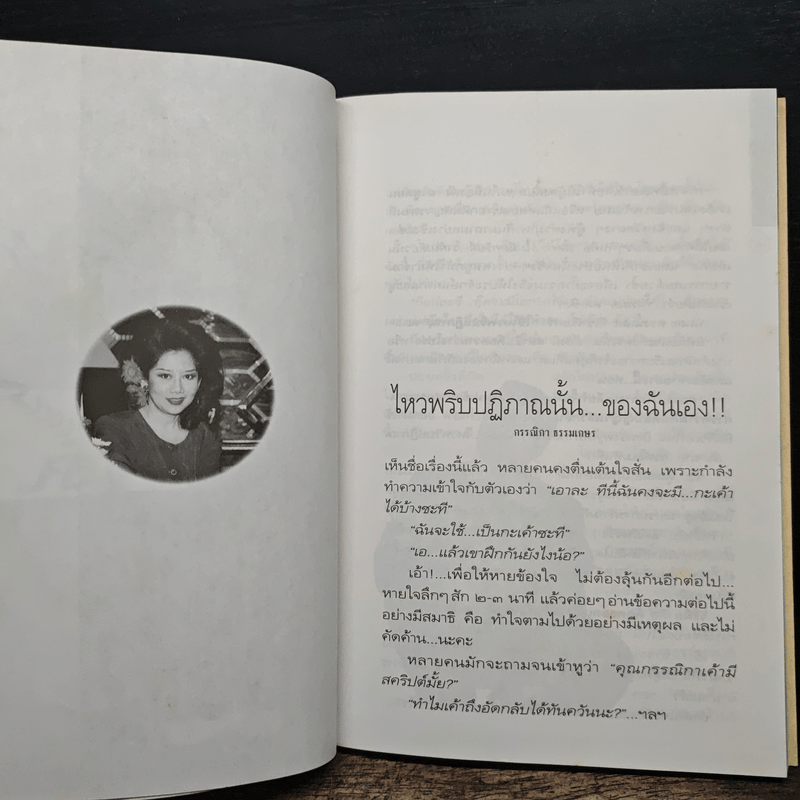 ไหวพริบปฏิภาณนั้น...ของฉันเอง!!
กรรณิกา ธรรมเกษร
เห็นชื่อเรื่องนี้แล้ว หลายคนคงตื่นเต้นใจสั่น เพราะกำลัง
ทำความเข้าใจกับตัวเองว่า "เอาละ ทีนี้ฉันคงจะมี...กะเค้า
ได้บ้างซะที"
"ฉันจะใช้...เป็นกะเค้าซะที"
"เอ...แล้วเขาฝึกกันยังไงน้อ?"
เอ้า!...เพื่อให้หายข้องใจ ไม่ต้องลุ้นกันอีกต่อไป...
หายใจลึกๆ สัก ๒-๓ นาที แล้วค่อยๆ อ่านข้อความต่อไปนี้
อย่างมีสมาธิ คือ ทำใจตามไปด้วยอย่างมีเหตุผล และไม่
คัดค้าน...นะคะ
หลายคนมักจะถามจนเข้าหูว่า "คุณกรรณิกาเค้ามี
สคริปต์มั้ย?"
"ทำไมเค้าถึงอัดกลับได้ทันควันนะ?"...ฯลฯ